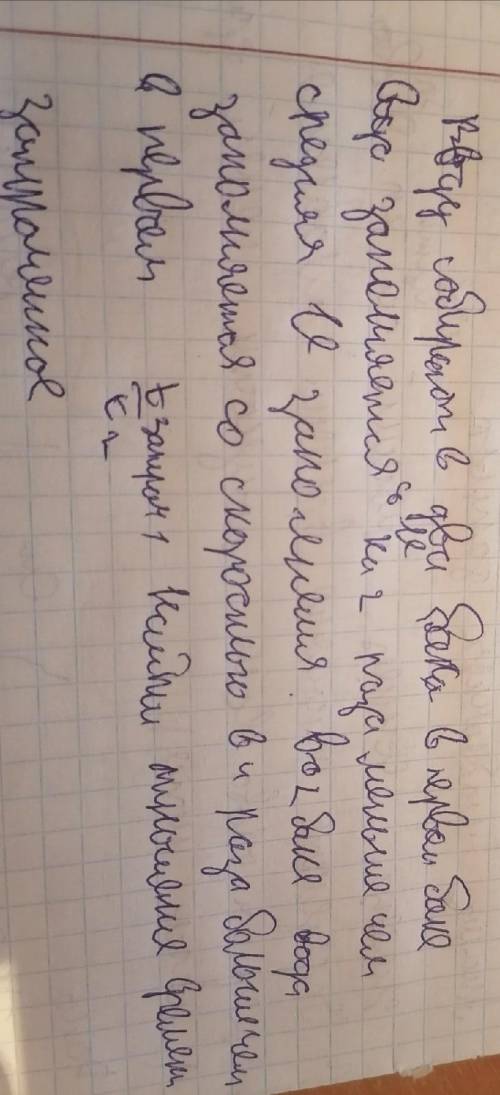 Воду собирают в два бака в первом баке
заполняется со V в 2 раза меньше чем
средняя V заполнения. во 2 баке вода
заполняется со скоростью в 4 раза больше чем
в первом t запрон 1 Найти отношение времен
к 2
затраченное